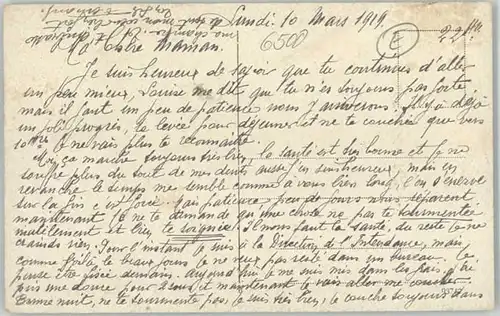 Lundi 10 Mars 1919
6500
22
Ma Chère Maman.
Je suis heureux de savoir que tu continues d'aller
un peu mieux, Louise me dit que tu n'es toujours pas forte
mais il faut un peu de patience nous y arriverons. Il y a déjà
un joli progrès, te levée pour déjeuner et ne te couches que vers
10h je ne vais plus te reconnaître.
Moi ça marche toujours très bien, la santé est très bonne et je ne
souffre plus du tout de mes dents aussi j'en suis heureux, mais en
revanche le temps me semble comme à vous bien long, l'on s'énerve
sur la fin c'est forcé. Ayez patience peu de jours nous séparent
maintenant je ne te demande qu'une chose ne pas te tourmenter
inutilement et bien te soigner. Il nous faut la santé, du reste je ne
crains rien. Pour l'instant je suis à la Direction de l'Intendance, mais
comme voilà le beau jours je ne veux pas resté dans un bureau. Je
pense être fixé demain. Aujourd'hui je me suis mis dans les
pris une douche pour 2 sous et maintenant je vais aller me coucher
Bonne nuit, ne te tourmente pas, je suis très bien, je couche toujours dans